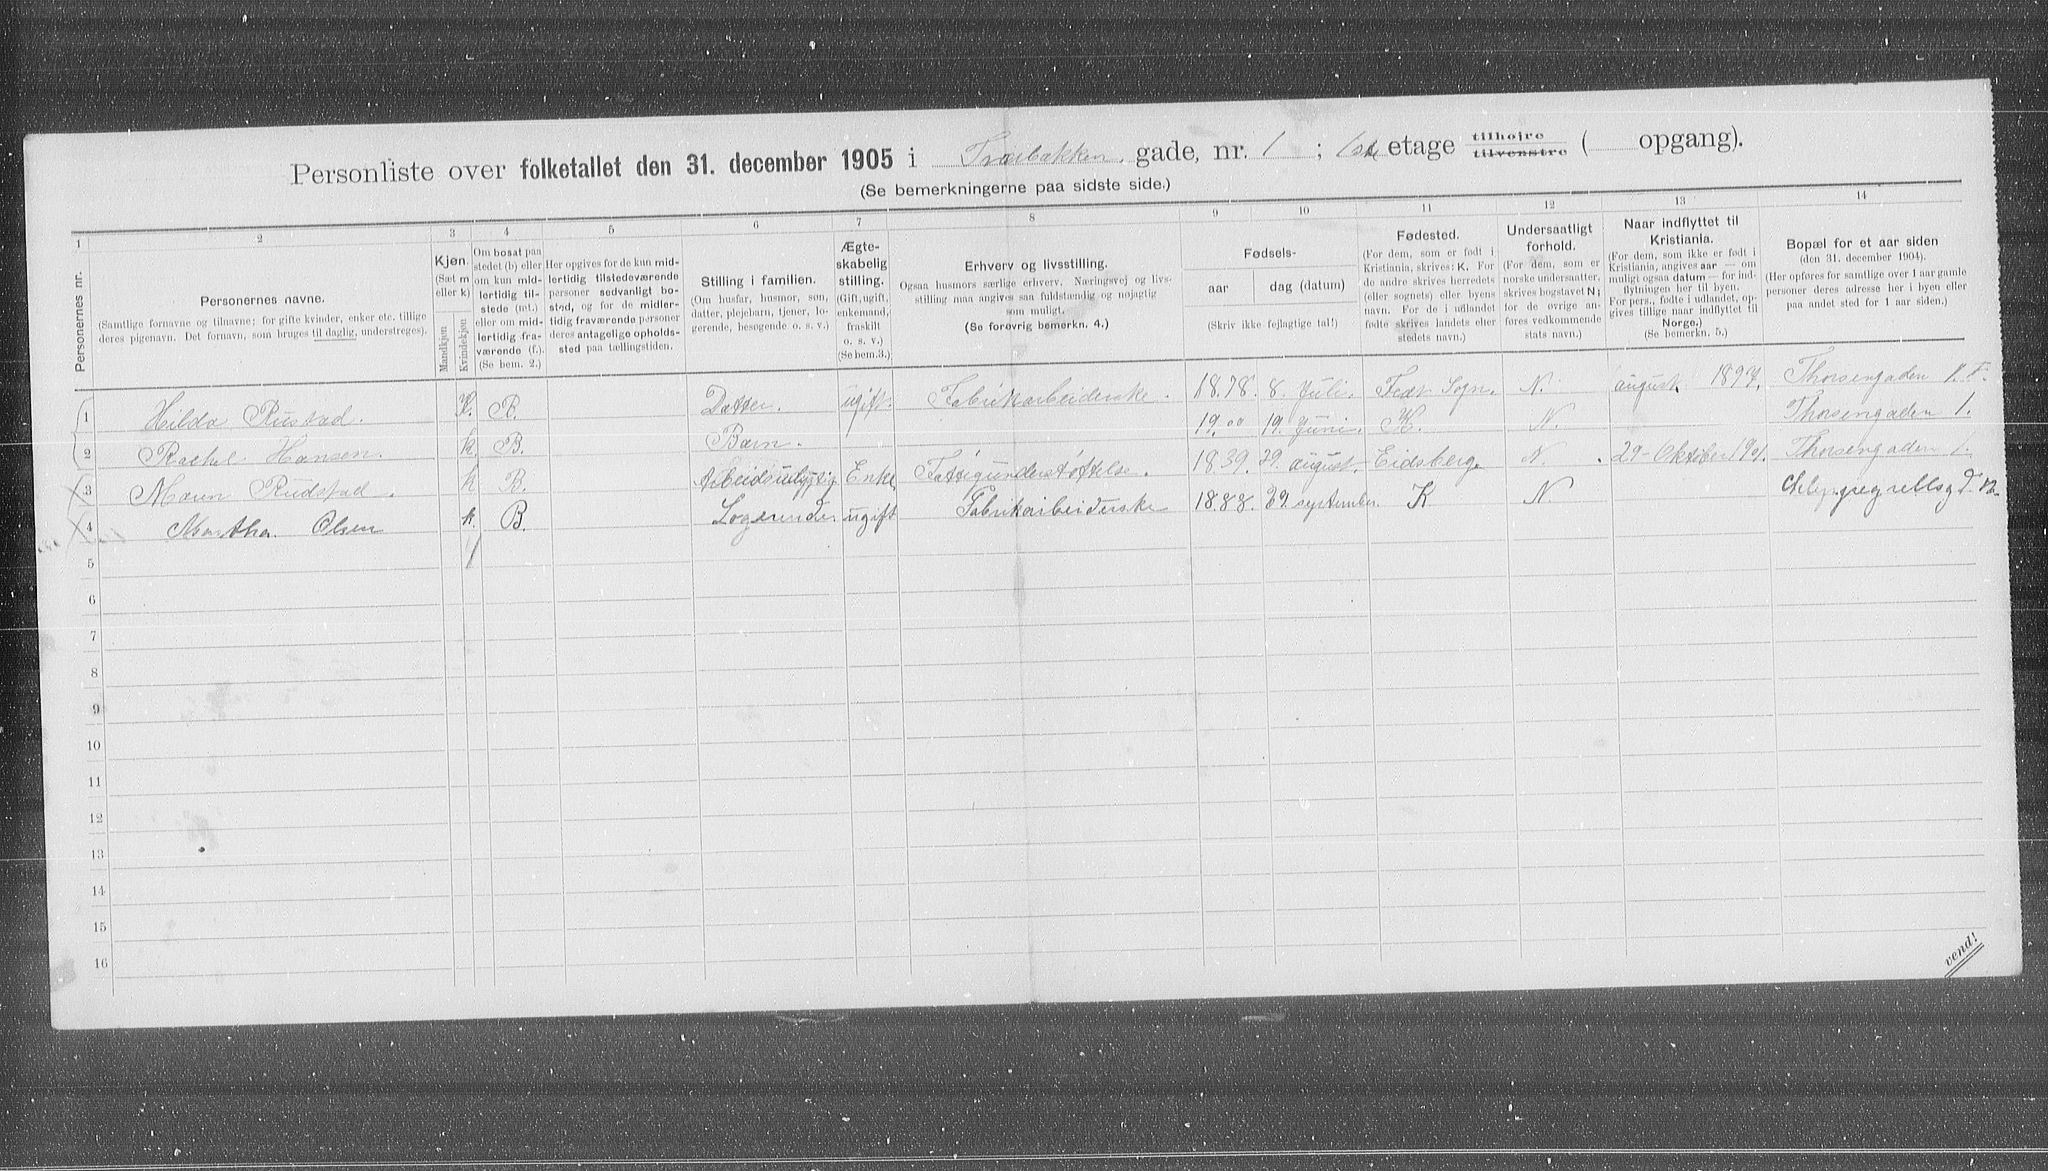 Personliste over folketallet den 31. december 1905 i Træbakken gade, nr. 1 ; 1ste etage tilhøire tilvenstre ( opgang).
(Se bemerkningerne paa sidste side.)
1 2 3 4 5 6 7 8 9 10 11 12 13 14
Personernes nr.
Personernes navne.
(Samtlige fornavne og tilnavne; for gifte kvinder, enker etc. tillige
deres pigenavn. Det fornavn, som bruges til daglig, understreges).
Kjøn.
(Sæt m
eller k)
Mandkjøn
Kvindekjøn
Om bosat paa
stedet (b) eller
om kun mid-
lertidig til-
stede (mt.)
eller om mid-
lertidig fra-
værende (f.).
(Se bem. 2.)
Her opgives for de kun mid-
lertidig tilstedeværende
personer sedvanligt bo-
sted, og for de midler-
tidig fraværende personer
deres antagelige opholds-
sted paa tællingstiden.
Stilling i familien.
(Om husfar, husmor, søn,
datter, plejebarn, tjener, lo-
gerende, besøgende o. s. v.)
Ægte-
skabelig
stilling.
(Gift, ugift,
enkemand,
fraskilt
o. s. v.)
(Se bem.3.)
Erhverv og livsstilling.
Ogsaa husmors særlige erhverv. Næringsvej og livs-
stilling maa angives saa fuldstændig og nøjagtig
som muligt.
(Se forøvrig bemerkn. 4.)
Fødsels-
aar dag (datum)
(Skriv ikke fejlagtige tal!)
Fødested.
(For dem, som er født i
Kristiania, skrives: K. For
de andre skrives herredets
(eller sognets) eller byens
navn. For de i udlandet
fødte skrives landets eller
stedets navn.)
Undersaatligt
forhold.
(For dem, som er
norske undersaatter,
skrives bogstavet N;
for de øvrige an-
føres vedkommende
stats navn.)
Naar indflyttet til
Kristiania.
(For dem, som ikke er født i
Kristiania, angives aar — om
muligt ogsaa datum — for ind-
flytningen her til byen.
For pers., fødte i udlandet, op-
gives tillige naar indflyttet til
Norge.)
(Se bemerkn. 5.)
Bopæl for et aar siden
(den 31. december 1904).
(Her opføres for samtlige over 1 aar gamle
personer deres adresse her i byen eller
paa andet sted for 1 aar siden.)
1 Hilda Rustad. K. B. Datter. ugift. Fabrikarbeiderske. 1878. 8 Juli. N. august 1897. Thorsengaden 1.
2 Rachel Hansen. k. B. Barn. 1900 19. Juni. K. N. Thorsengaden 1.
3 Maren Rudstad. k B. Enke Fattigunderstøttelse. 1839. 29. august. Eidsberg N. 29 Oktober Thorsengaden 1.
4 Martha Olsen k. B. Logerende ugift Fabrikarbeiderske 1888. 29. september. K N
5
6
7
8
9
10
11
12
13
14
15
16
vend!